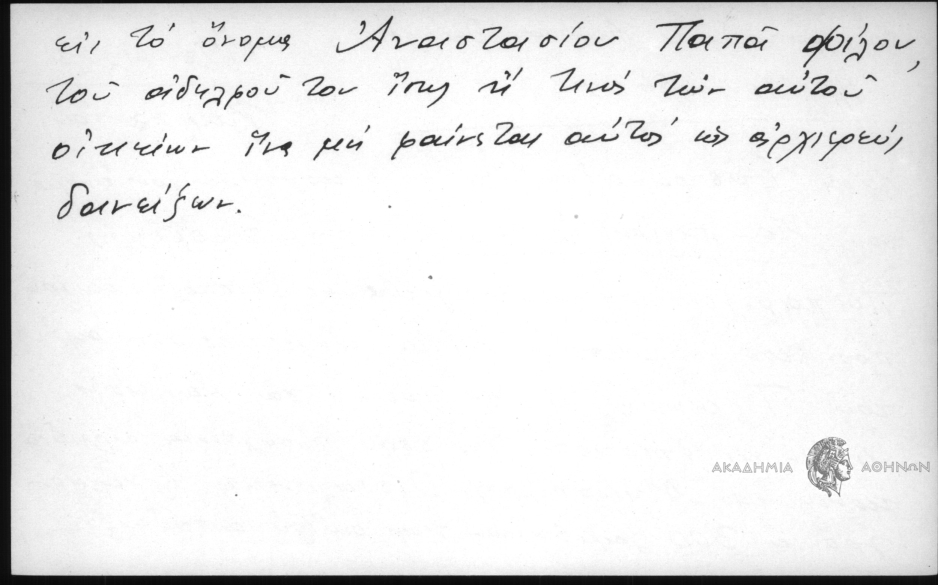 εἰς τό ὄνομα Ἀναστασίου Παπᾶ φίλου,
τοῦ ἀδελφοῦ του ἤ τινός τῶν αὐτοῦ
οἰκείων ἵνα μή φαίνεται αὐτός ὡς ἀρχιερεύς
δανείζων.
ΑΚΑΔΗΜΙΑ ΑΘΗΝΩΝ